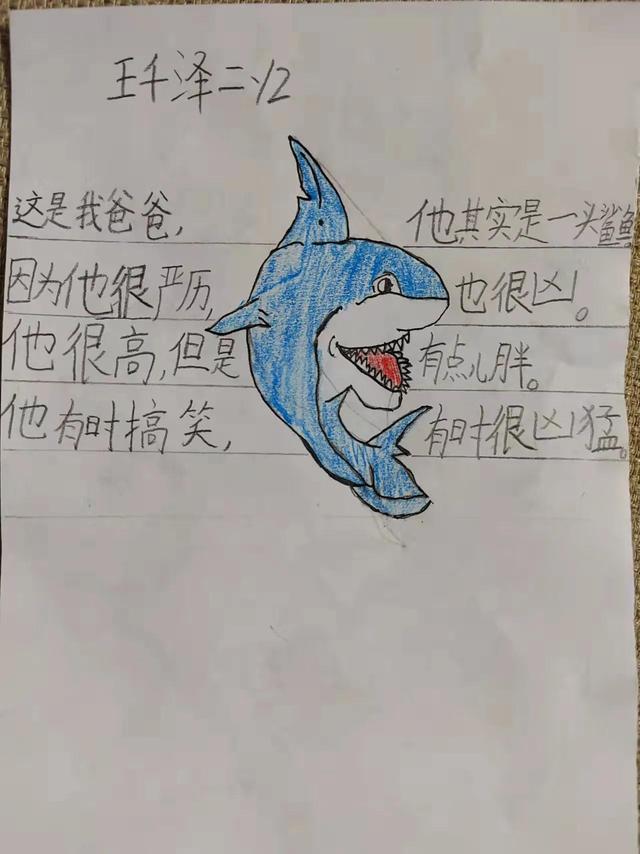 王千泽二1/2
这是我爸爸, 他其实是一头鲨鱼
因为他很严历, 也很凶。
他很高,但是 有点儿胖。
他有时搞笑, 有时很凶猛。